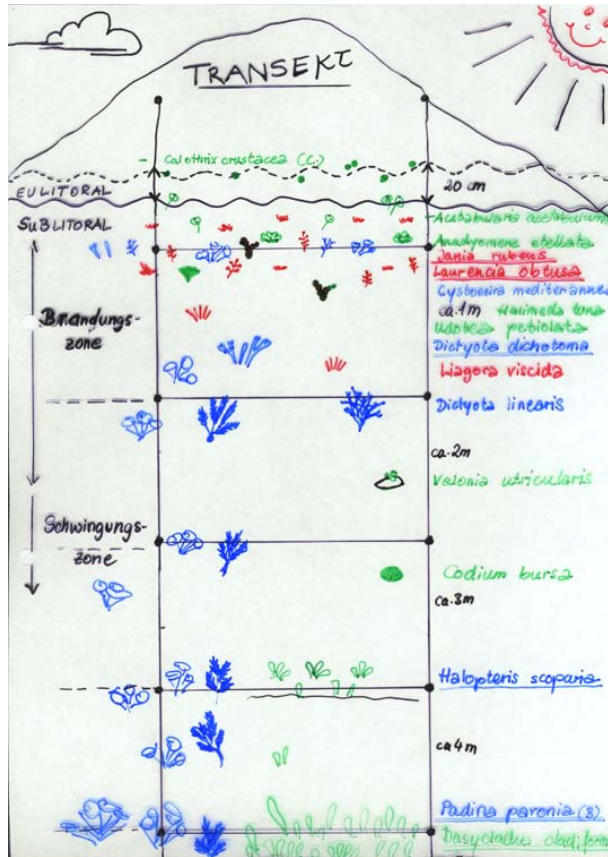 TRANSEKT
Calothrix crustacea (C.)
EULITORAL
20 cm
SUBLITORAL
Acetabularia acetabulum
Anadyomene stellata
Jania rubens
Laurencia obtusa
Cystoseira mediterannea
ca.1m Halimeda tuna
Brandungs-
zone
Udotea petiolata
Dictyota dichotoma
Liagora viscida
Dictyota linearis
ca.2m
Valonia utricularis
Schwingungs-
zone
Codium bursa
ca.3m
Halopteris scoparia
ca 4m
Padina pavonia (B)
Dasycladus cladiform